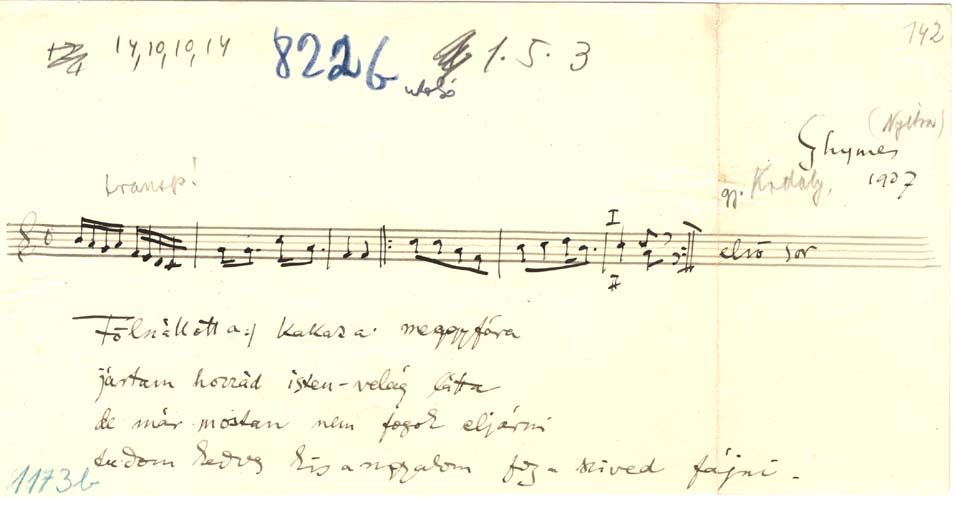 142
14,10,10,14 8226 1. 5. 3
utolsó
(Nyitra)
Ghymes
transp! gy. Kodály, 1907
I
első sor
II
Fölszállott a :/ kakas a meggyfára
jártam hozzád isten-velág látta
de már mostan nem fogok eljárni
tudom kedves kis angyalom fog a szived fájni.
1173b